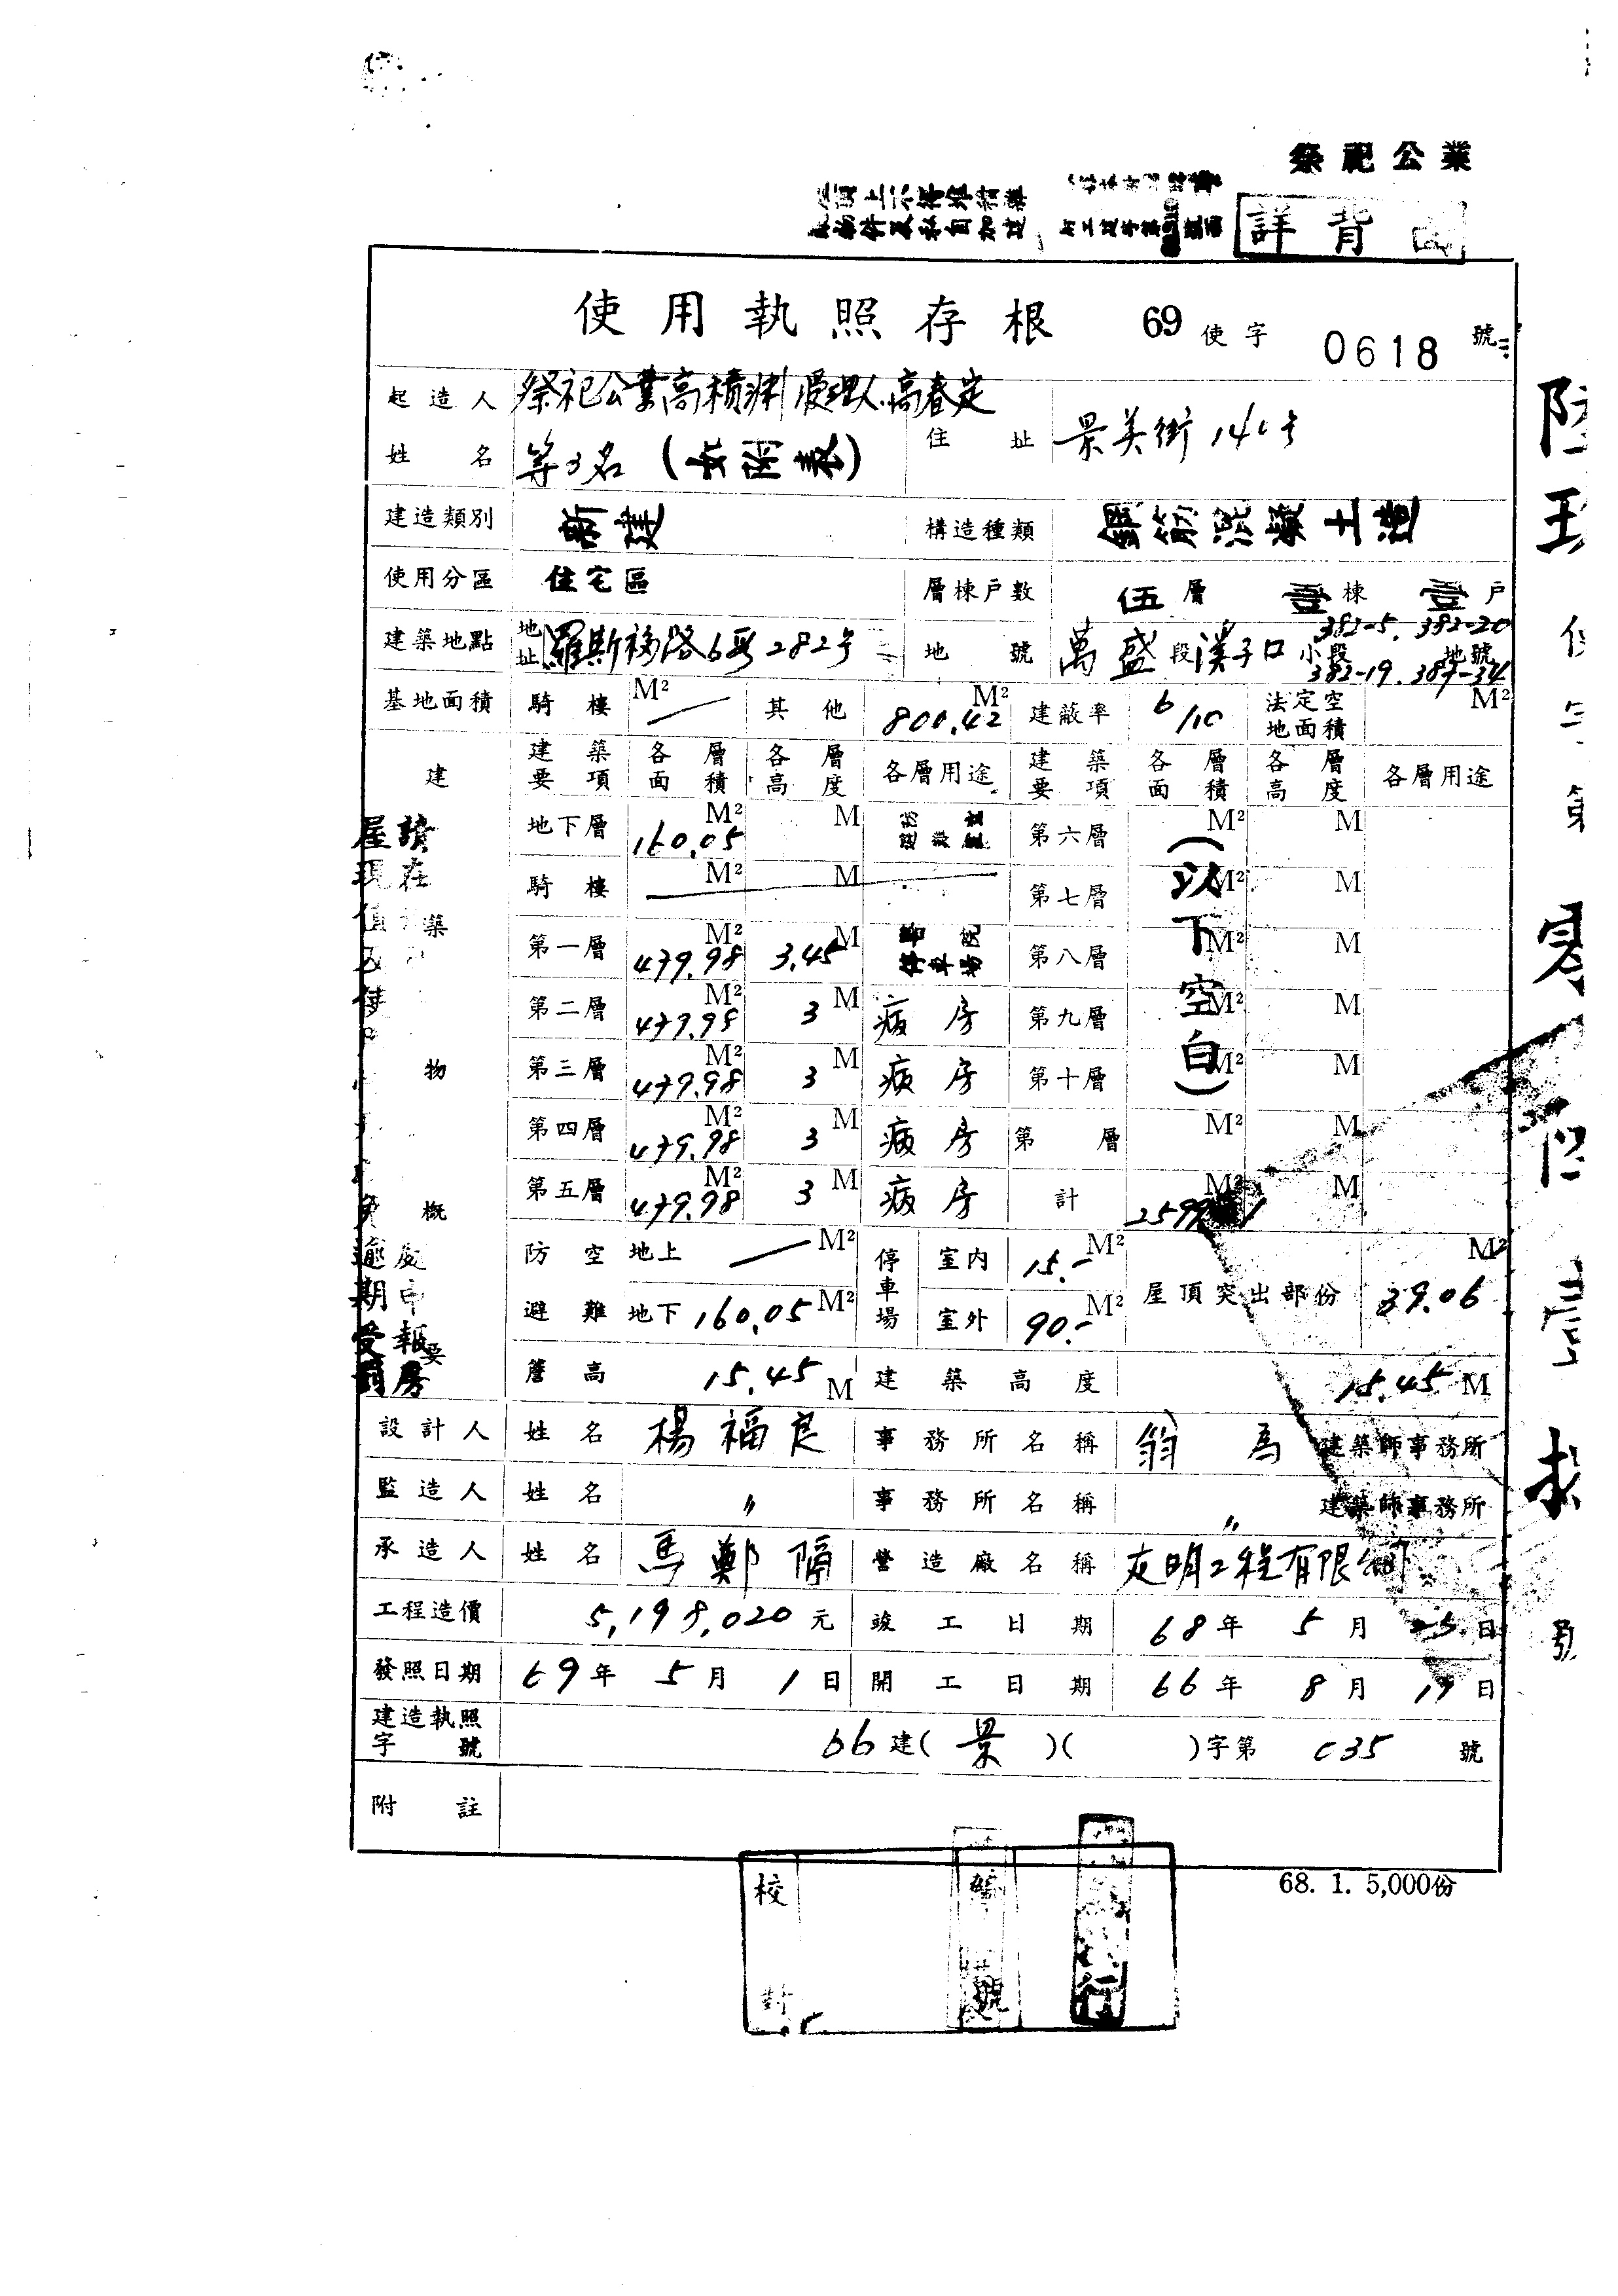 祭祀公業
詳背面
使用執照存根 69 使字 0618 號
起造人姓名 祭祀公業高積 管理人高春定 等3名(如附表) 住址 景美街14 號
建造類別 新建 構造種類 鋼筋混凝土造
使用分區 住宅區 層棟戶數 伍層 壹棟 壹戶
建築地點 地址 羅斯福路6段282号 地號 萬盛段溪子口小段 382-5. 382-20 382-19. 387-34 地號
基地面積 騎樓 M² — 其他 800.42 M² 建蔽率 6/10 法定空地面積 M²
建築物概要
建築要項 各層面積 各層高度 各層用途 建築要項 各層面積 各層高度 各層用途
地下層 160.05 M² M 第六層 M² M
騎樓 M² M 第七層 M² M
第一層 479.98 M² 3.45 M 醫院停車場 第八層 M² M
第二層 479.98 M² 3 M 病房 第九層 M² M
第三層 479.98 M² 3 M 病房 第十層 M² M
第四層 479.98 M² 3 M 病房 第 層 M² M
第五層 479.98 M² 3 M 病房 計 M² M
(以下空白)
防空避難 地上 — M² 停車場 室內 15.- M² 屋頂突出部份 39.06 M²
地下 160.05 M² 室外 90.- M²
簷高 15.45 M 建築高度 15.45 M
設計人 姓名 楊福良 事務所名稱 翁 馬 建築師事務所
監造人 姓名 〃 事務所名稱 〃 建築師事務所
承造人 姓名 馬鄭 營造廠名稱 友明工程有限公司
工程造價 5,198,020元 竣工日期 68年5月25日
發照日期 69年5月1日 開工日期 66年8月 日
建造執照字號 66建(景)( )字第 035 號
附註
68. 1. 5,000份
校對
號
行